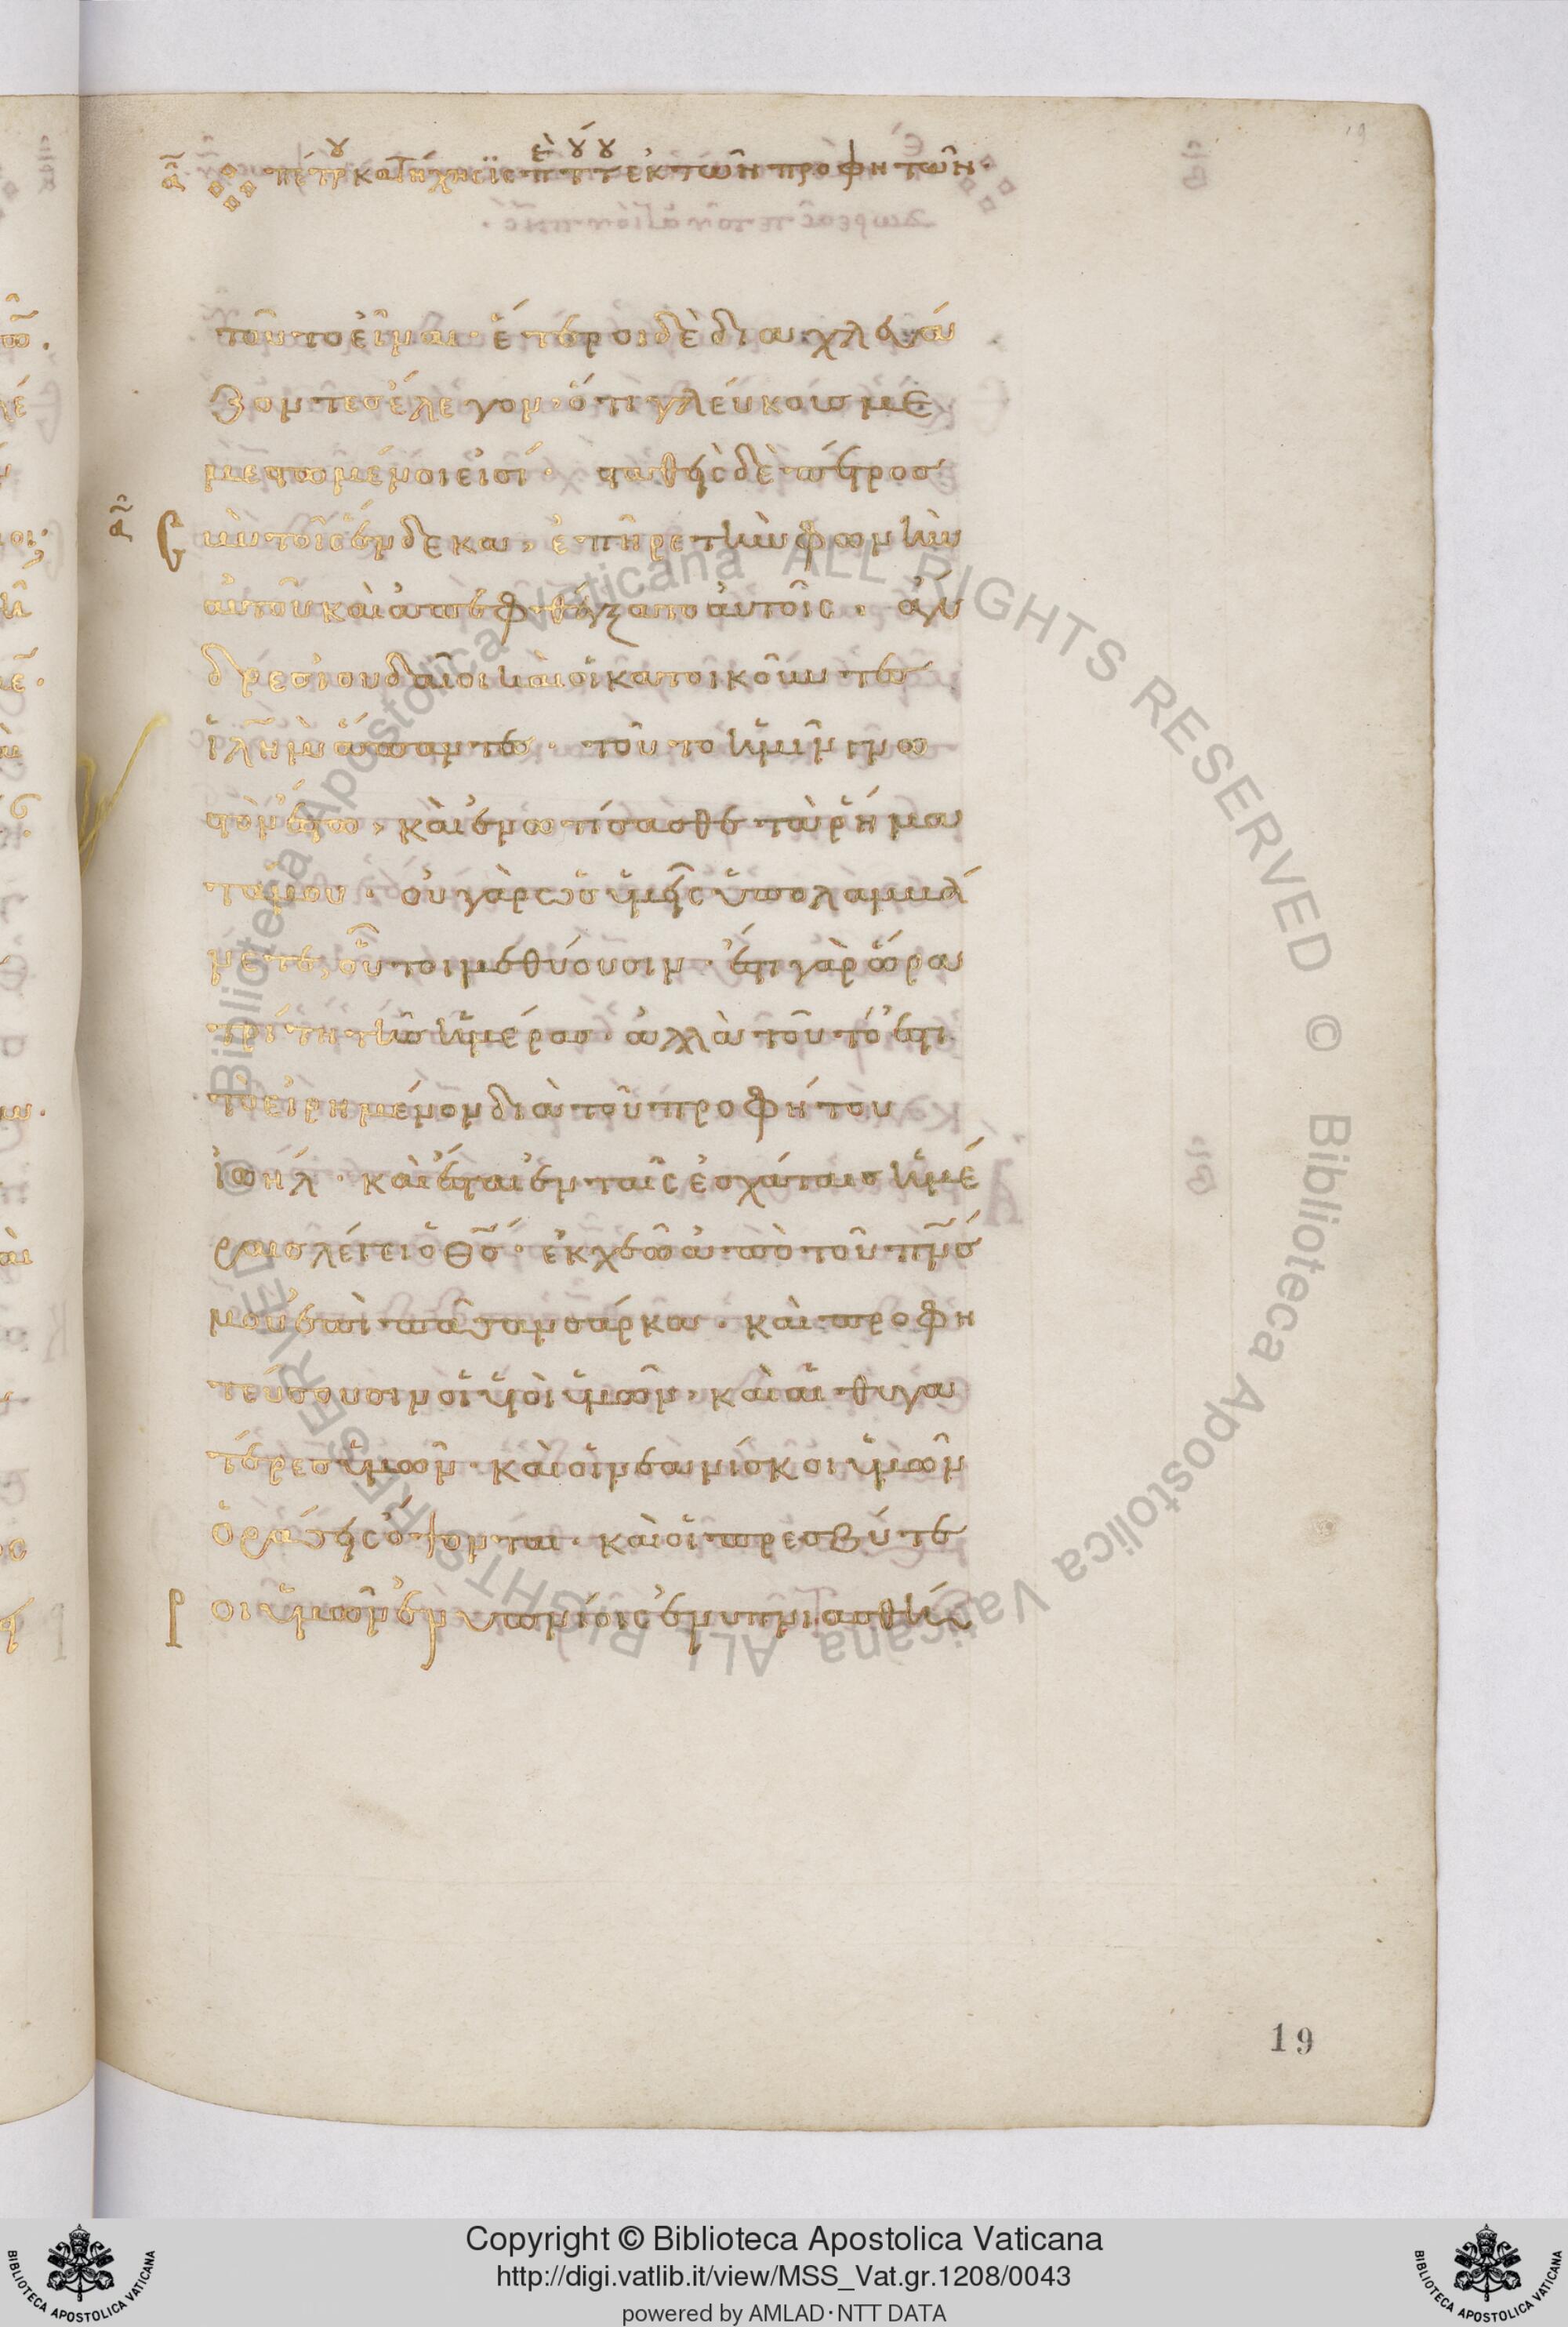 α πέτρου κατήχησϊς ἐπὶ τούτου ἐκ τῶν προφητῶν·
τοῦτο εἶναι· ἕτεροι δὲ διαχλευά
ζοντες ἔλεγον· ὅτι γλεύκους με
μεστωμένοι εἰσί· σταθεὶς δὲ πέτρος
σὺν τοῖς ἕνδεκα, ἐπῆρε τὴν φωνὴν
αὐτοῦ καὶ ἀπεφθέγξατο αὐτοῖς· ἄν
δρες ἰουδαῖοι καὶ οἱ κατοικοῦντες
ἱλὴμ ἅπαντες· τοῦτο ὑμῖν γνω
στὸν ἔστω, καὶ ἐνωτίσασθε τὰ ῥήμα
τά μου· οὐ γὰρ ὡς ὑμεῖς ὑπολαμβά
νετε, οὗτοι μεθύουσιν· ἔστι γὰρ ὥρα
τρίτη τῆς ἡμέρας· ἀλλὰ τοῦτό ἐστι
τὸ εἰρημένον διὰ τοῦ προφήτου
ἰωήλ· καὶ ἔσται ἐν ταῖς ἐσχάταις ἡμέ
ραις λέγει ὁ θς· ἐκχεῶ ἀπὸ τοῦ πνς
μου ἐπὶ πᾶσαν σάρκα· καὶ προφη
τεύσουσιν οἱ υἱοὶ ὑμῶν, καὶ αἱ θυγα
τέρες ὑμῶν· καὶ οἱ νεανίσκοι ὑμῶν
ὁράσεις ὄψονται· καὶ οἱ πρεσβύτε
ροι ὑμῶν ἐνυπνίοις ἐνυπνιασθή
19
Bibliotheca Apostolica Vaticana ALL RIGHTS RESERVED © Biblioteca Apostolica Vaticana ALL RIGHTS RESERVED
Copyright © Biblioteca Apostolica Vaticana
http://digi.vatlib.it/view/MSS_Vat.gr.1208/0043
powered by AMLAD·NTT DATA
BIBLIOTECA APOSTOLICA VATICANA
BIBLIOTECA APOSTOLICA VATICANA